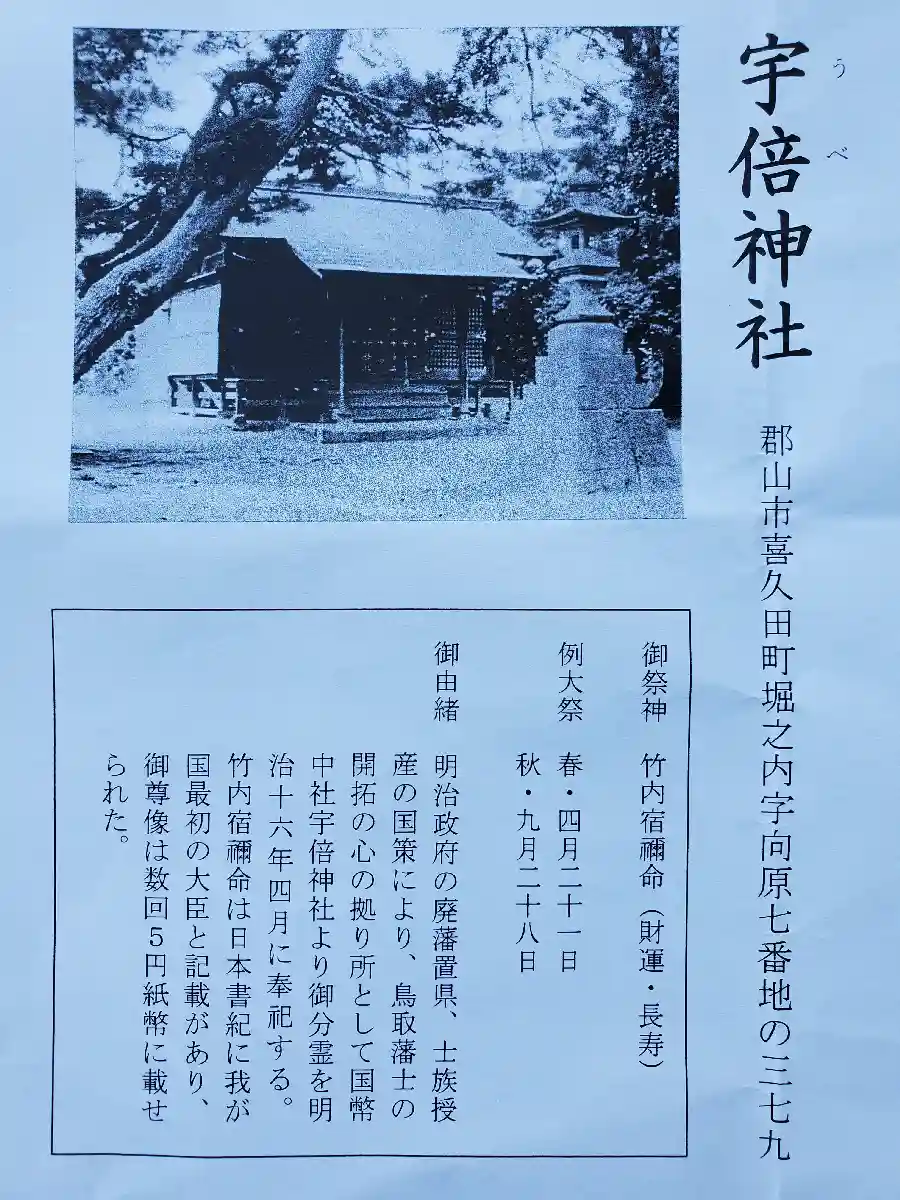 宇倍神社
うべ
郡山市喜久田町堀之内字向原七番地の三七九
御祭神　竹内宿禰命（財運・長寿）
例大祭　春・四月二十一日
秋・九月二十八日
御由緒　明治政府の廃藩置県、士族授
産の国策により、鳥取藩士の
開拓の心の拠り所として国幣
中社宇倍神社より御分霊を明
治十六年四月に奉祀する。
竹内宿禰命は日本書紀に我が
国最初の大臣と記載があり、
御尊像は数回５円紙幣に載せ
られた。